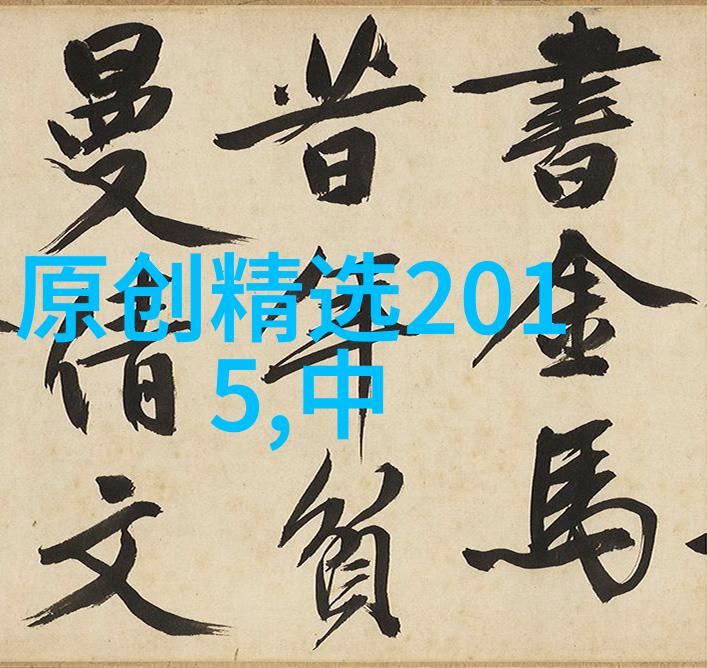 原创精选201
5,中
書金馬
昔年負
曼倩文